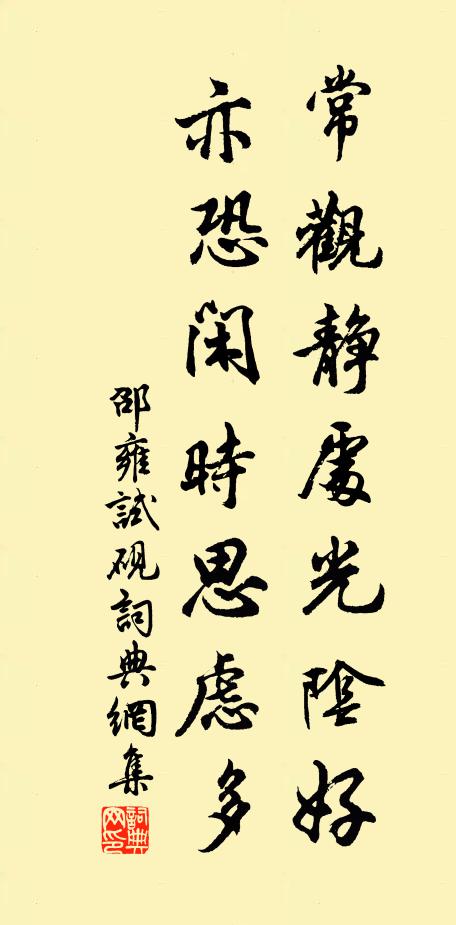 常觀静處光陰好
亦恐閑時思慮多
邵雍試硯詞典網集
詞典網印